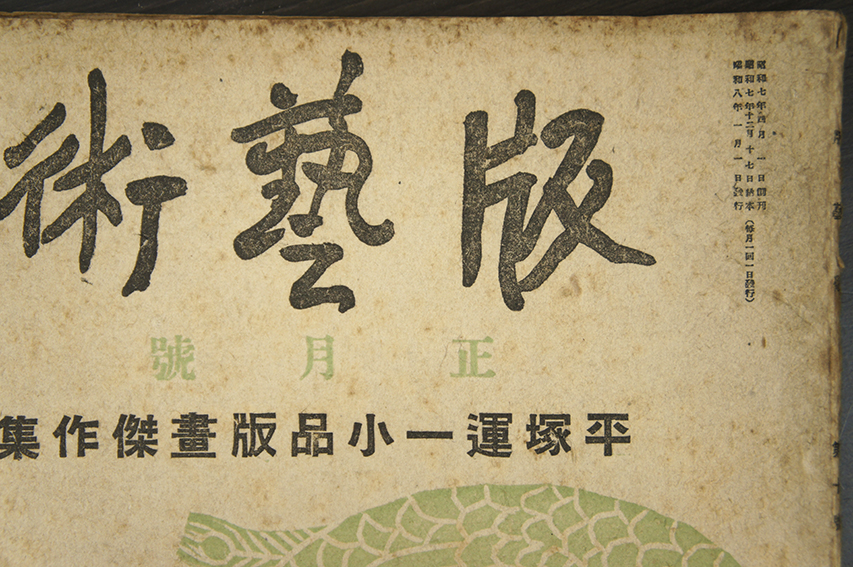 版藝術
正月號
平塚運一小品版畫傑作集
昭和七年四月一日創刊
昭和七年十二月十七日納本（每月一回一日發行）
昭和八年一月一日發行